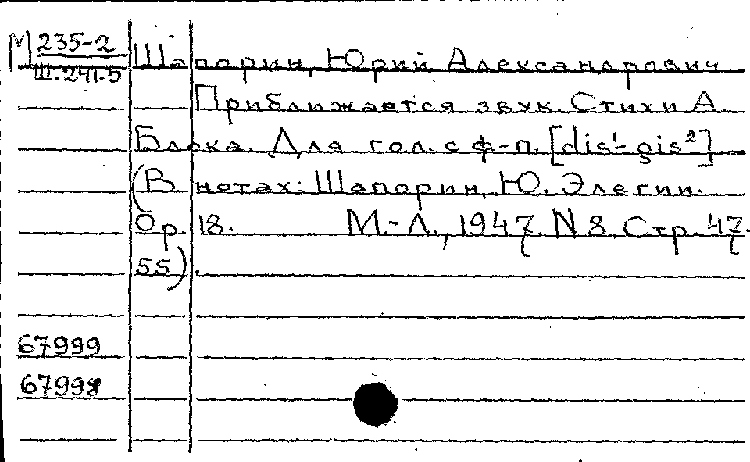 М 235-2
Ш.241-5
Шапорин, Юрий Александрович
Приближается звук. Стихи А.
Блока. Для гол. с ф-п. [dis¹-gis²]
(В нотах: Шапорин, Ю. Элегии.
Ор. 18. М.-Л., 1947. N 8. Стр. 47-
55).
67999
67998